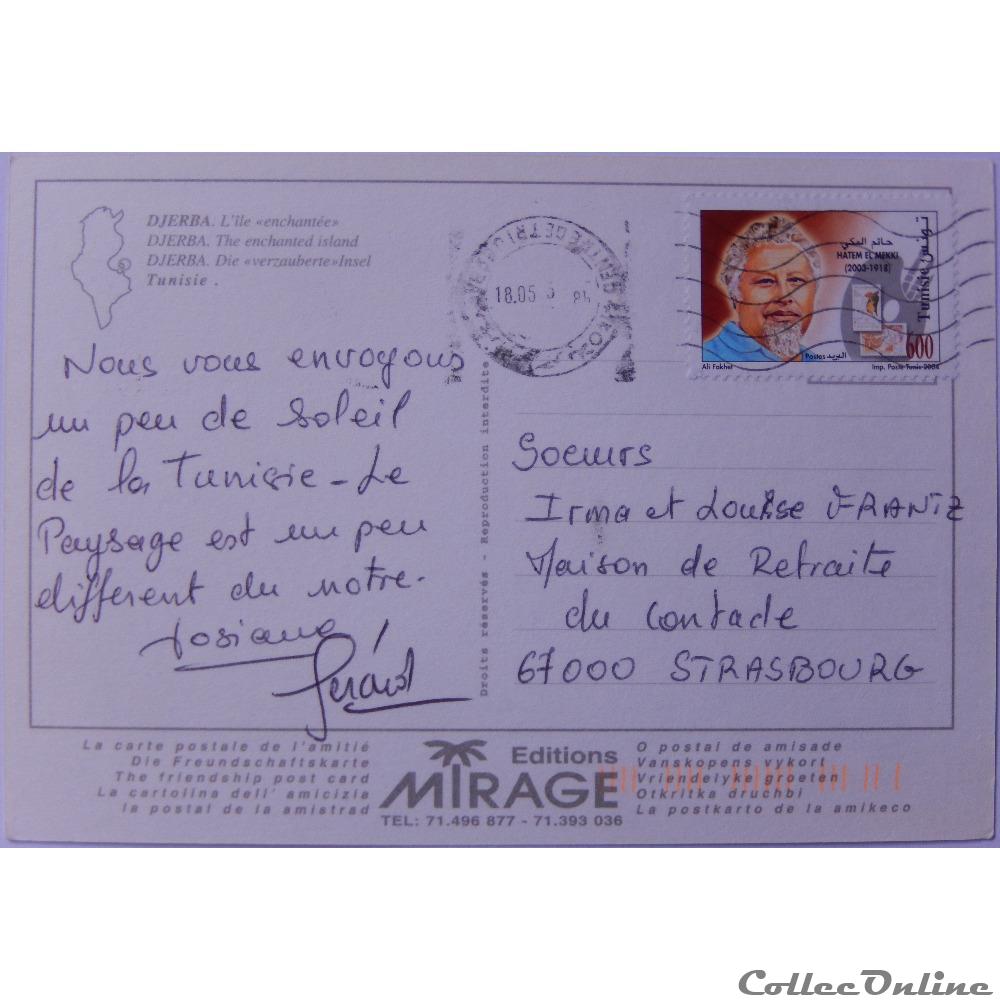 DJERBA. L'île «enchantée»
DJERBA. The enchanted island
DJERBA. Die «verzauberte» Insel
Tunisie .
Nous vous envoyons
un peu de soleil
de la Tunisie - Le
Paysage est un peu
différent du notre.
Josiane
Gérard
Droits réservés - Reproduction interdite
18.05
تونس Tunisie
حاتم المكي
HATEM EL MEKKI
(2003-1918)
600
Postes البريد
Ali Fakhet
Imp. Poste Tunis 2004
Soeurs
Irma et Louise FRANTZ
Maison de Retraite
du Contade
67000 STRASBOURG
La carte postale de l'amitié
Die Freundschaftskarte
The friendship post card
La cartolina dell' amicizia
la postal de la amistrad
Editions
MIRAGE
TEL: 71.496 877 - 71.393 036
O postal de amisade
Vanskopens vykort
Vriendelyke groeten
Otkritka druchbi
La postkarto de la amikeco
CollecOnline